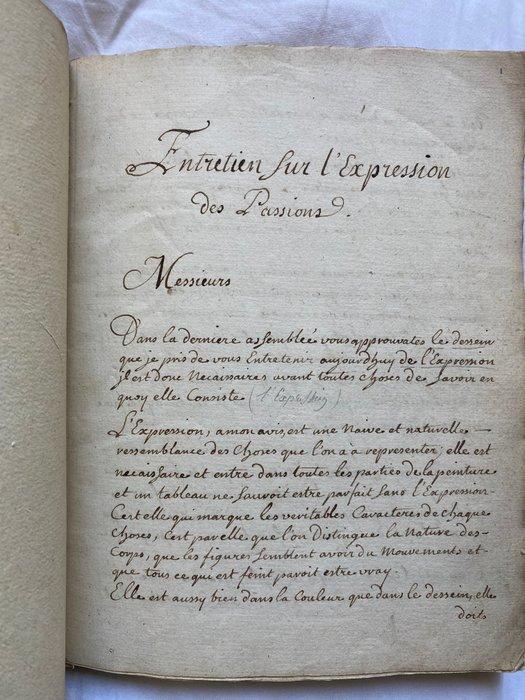 1
Entretien sur l'Expression
des Passions.
Messieurs
Dans la derniere assemblée vous approuvates le dessein
que je pris de vous Entretenir aujourdhuy de l'Expression
jl est donc Necaissaires avant toutes choses de savoir en
quoy elle Consiste
L'Expression, a mon avis, est une Naive et naturelle
ressemblance des Choses que l'on a a representer; elle est
necaissaire et entre dans toutes les parties de la peinture
et un tableau ne sauroit estre parfait sans l'Expression.
C'est elle qui marque les veritables Caracteres de chaque
choses, C'est par elle que l'on Distingue la Nature des
Corps, que les figures semblent avoir du Mouvements et
que tous ce qui est feint paroit estre vray.
Elle est aussy bien dans la Couleur que dans le dessein, elle
doits